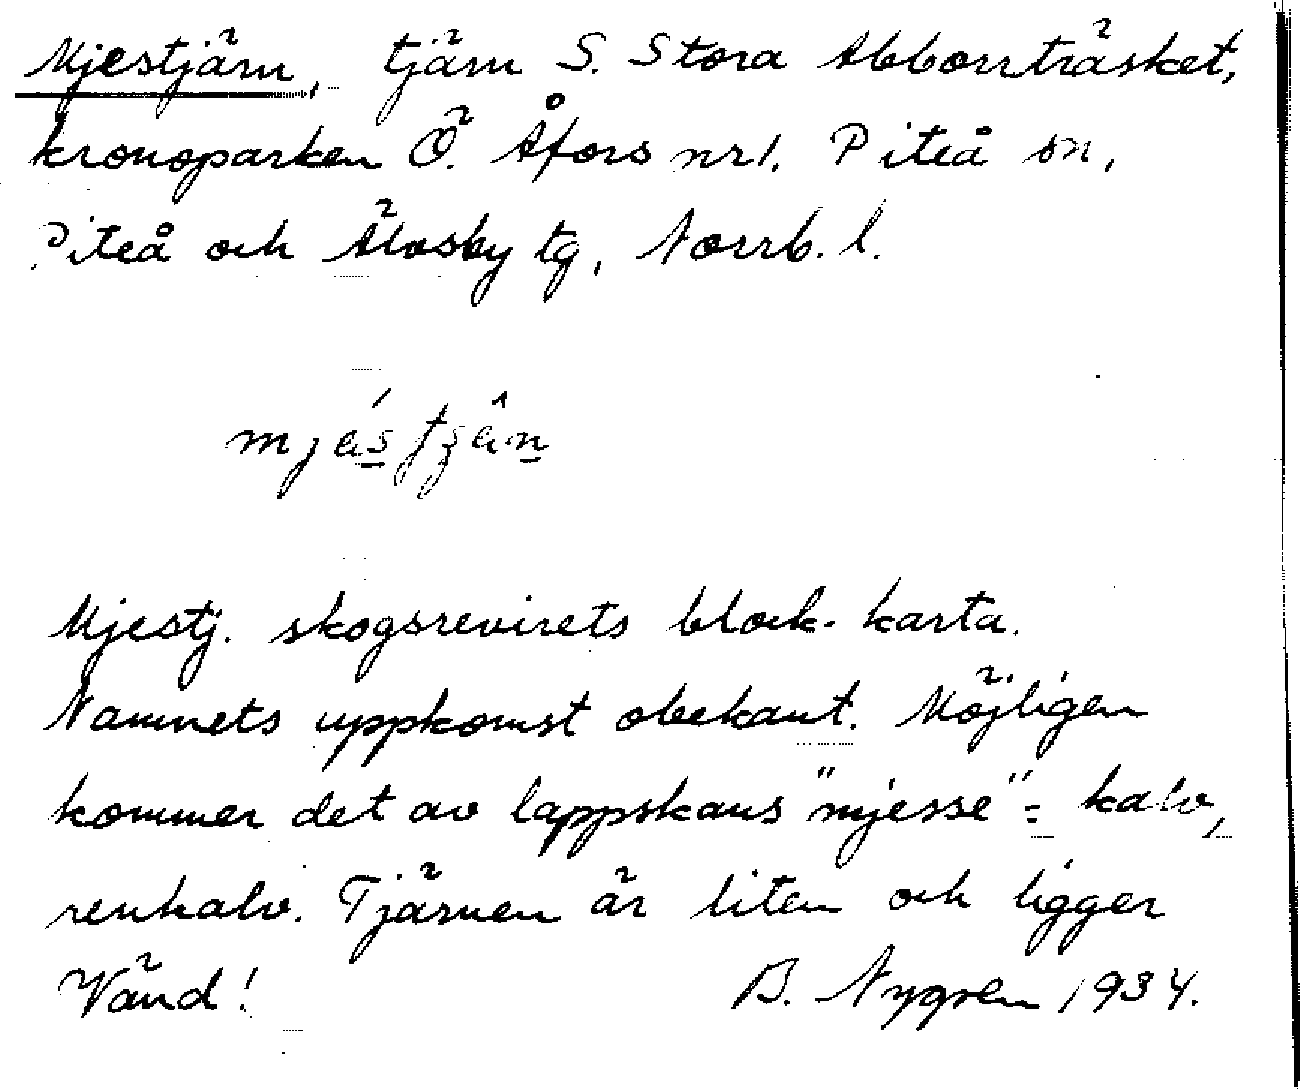 Mjestjärn, tjärn S. Stora Abborrträsket,
kronoparken Ö. Åfors nr 1. Piteå sn,
Piteå och Älvsby tg, Norrb. l.
Mjestj. skogsrevirets block-karta.
Namnets uppkomst obekant. Möjligen
kommer det av lappskans "mjesse" = kalv,
renkalv. Tjärnen är liten och ligger
Vänd! B. Nygren 1934.